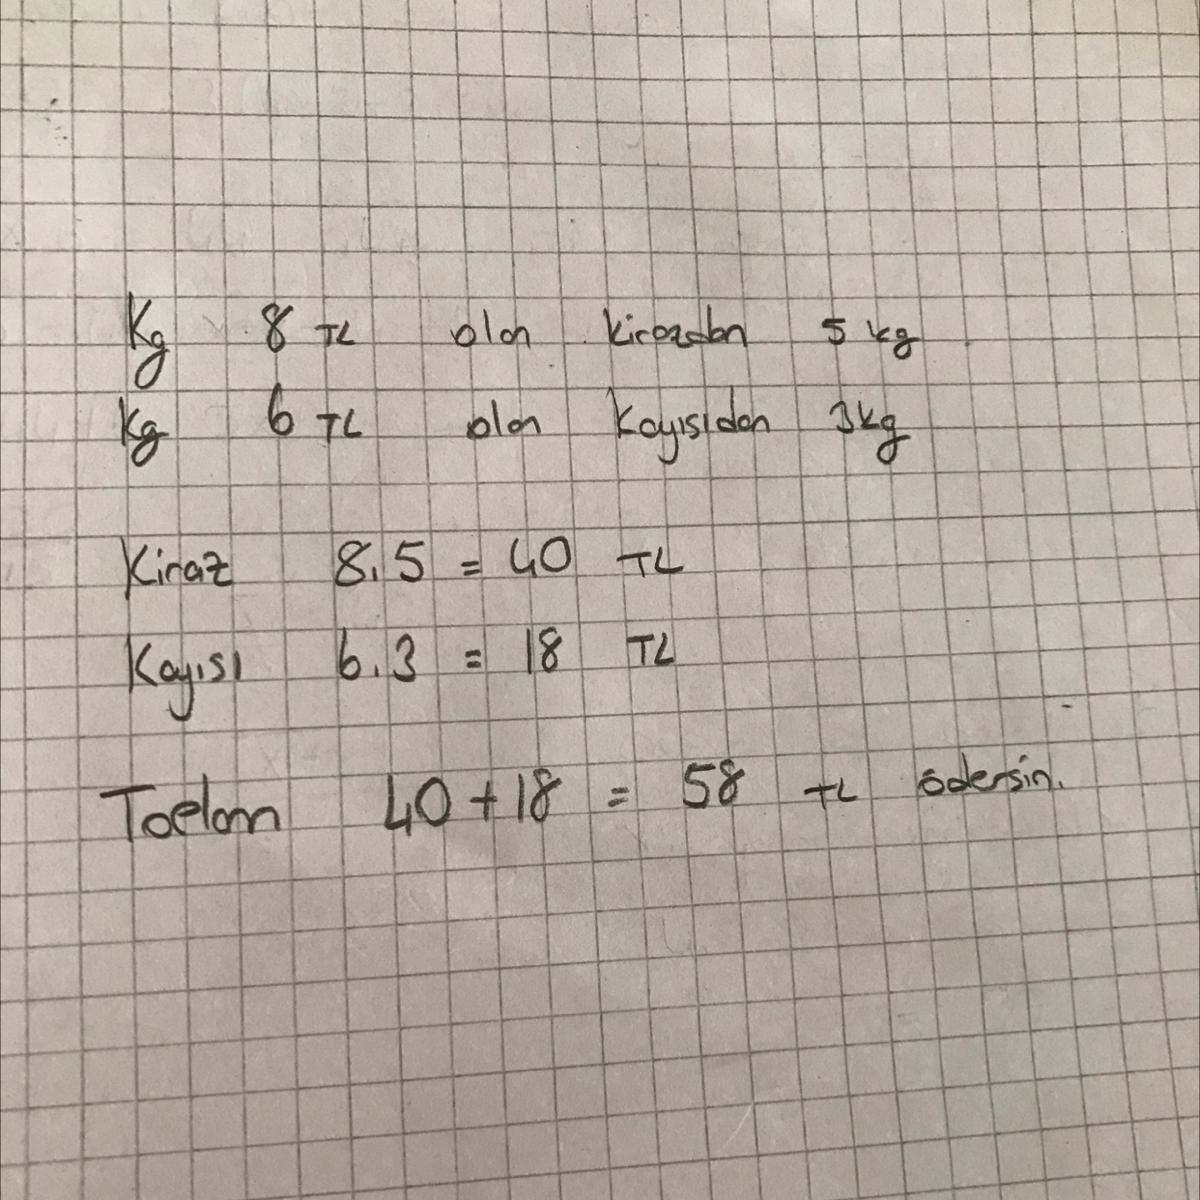 Kg 8 TL olan kirazdan 5 kg
Kg 6 TL olan Kayısıdan 3kg
Kiraz 8.5 = 40 TL
Kayısı 6.3 = 18 TL
Toplam 40 + 18 = 58 TL ödersin.